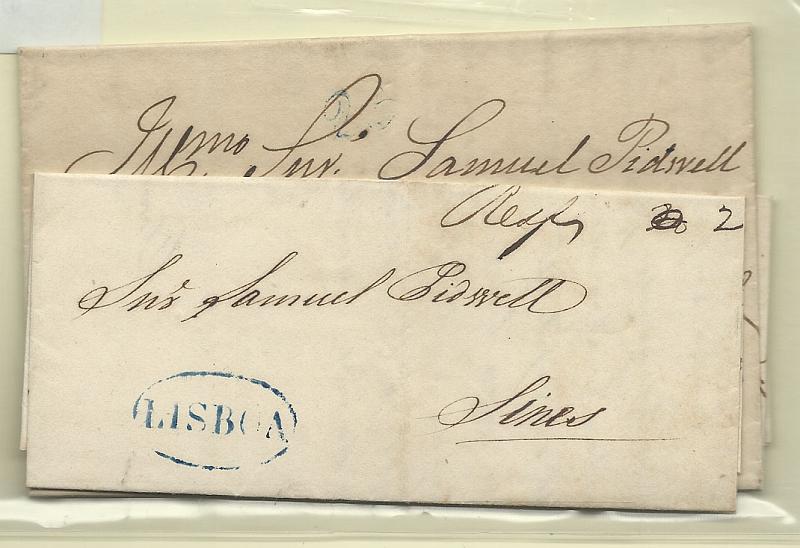 Illmo. Snr. Samuel Pidwell
2
Snr Samuel Pidwell
LISBOA
Sines